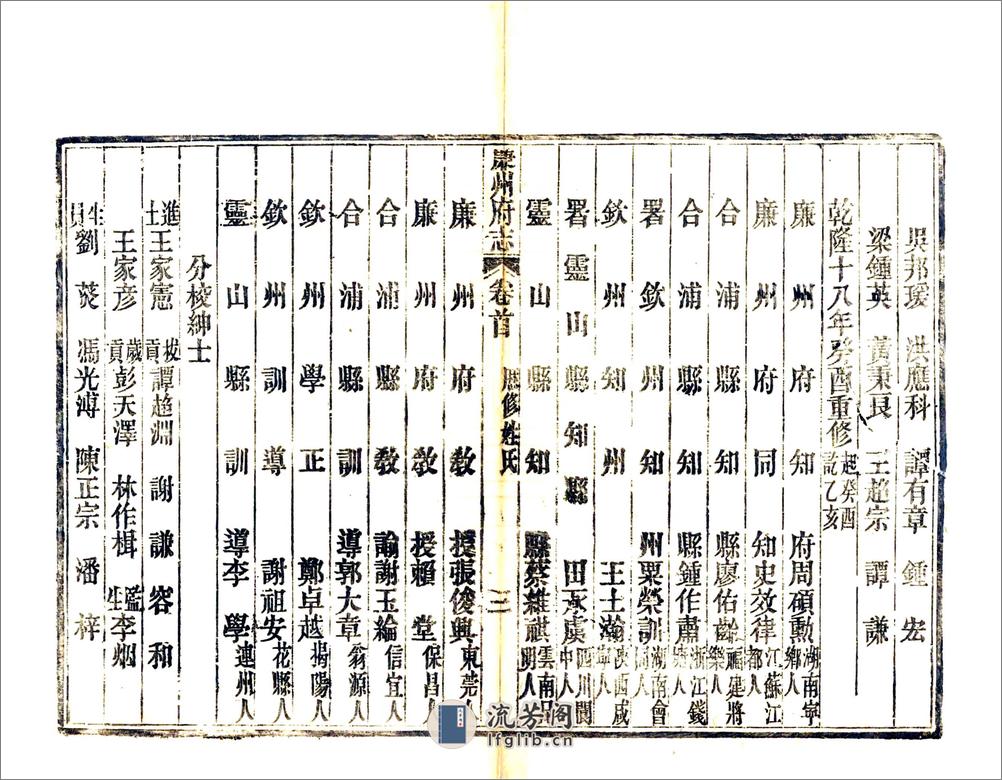 吳邦瑗　洪應科　譚有章　鍾宏
梁鍾英　黃秉良　王超宗　譚謙
乾隆十八年癸酉重修起癸酉訖乙亥
廉州府知府周碩勳湖南寧鄉人
廉州府同知史效律江蘇江都人
合浦縣知縣廖佑齡福建將樂人
合浦縣知縣鍾作肅浙江錢塘人
署欽州知州粟榮訓湖南會同人
欽州知州王士瀚陝西咸寧人
署靈山縣知縣田承虞四川閬中人
靈山縣知縣蔡維祺雲南昆明人
廉州府志　卷首　歷修姓氏　三
廉州府教授張俊興東莞人
廉州府教授賴堂保昌人
合浦縣教諭謝玉綸信宜人
合浦縣訓導郭大章翁源人
欽州學正鄭卓越揭陽人
欽州訓導謝祖安花縣人
靈山縣訓導李學連州人
分校紳士
進士王家憲　拔貢譚超淵　謝謙　容和
王家彥　歲貢彭天澤　林作楫　監生李烟
生員劉葵　馮光溥　陳正宗　潘梓
流芳阁
lfglib.cn